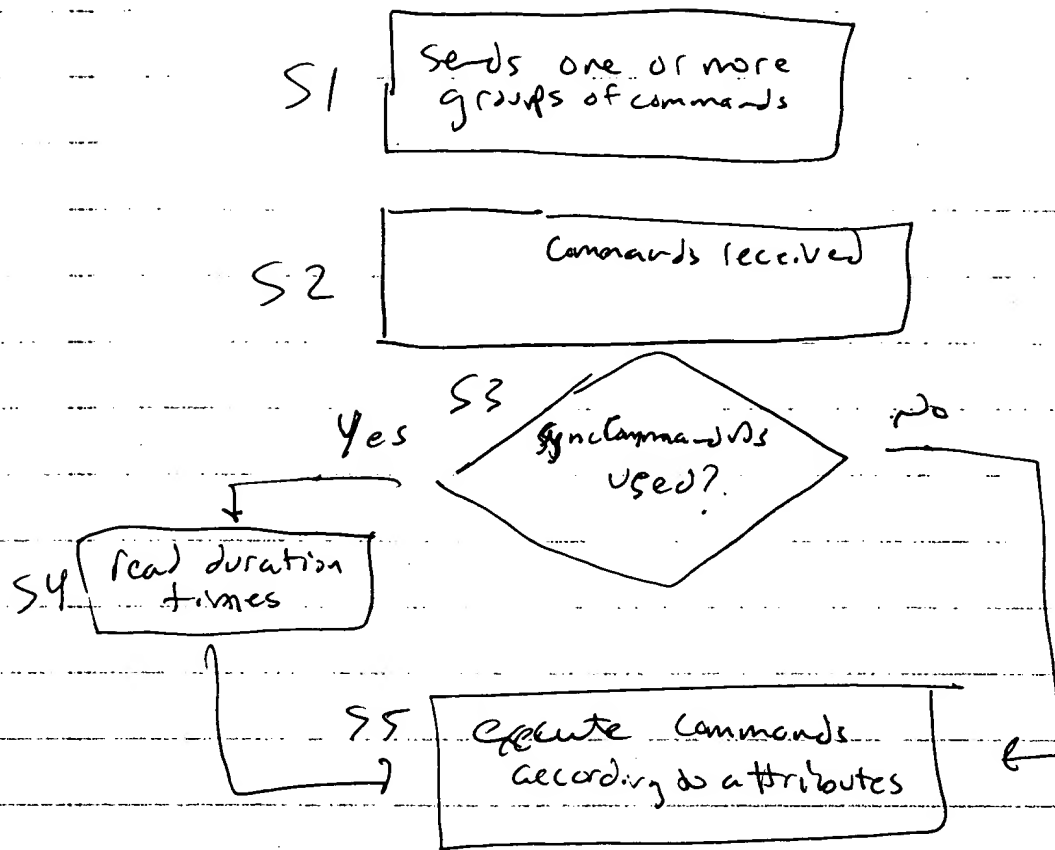 S1
Sends one or more
groups of commands
S2
Commands received
S3
Yes
No
sync Commands
used?
S4
read duration
times
S5
execute commands
according to attributes